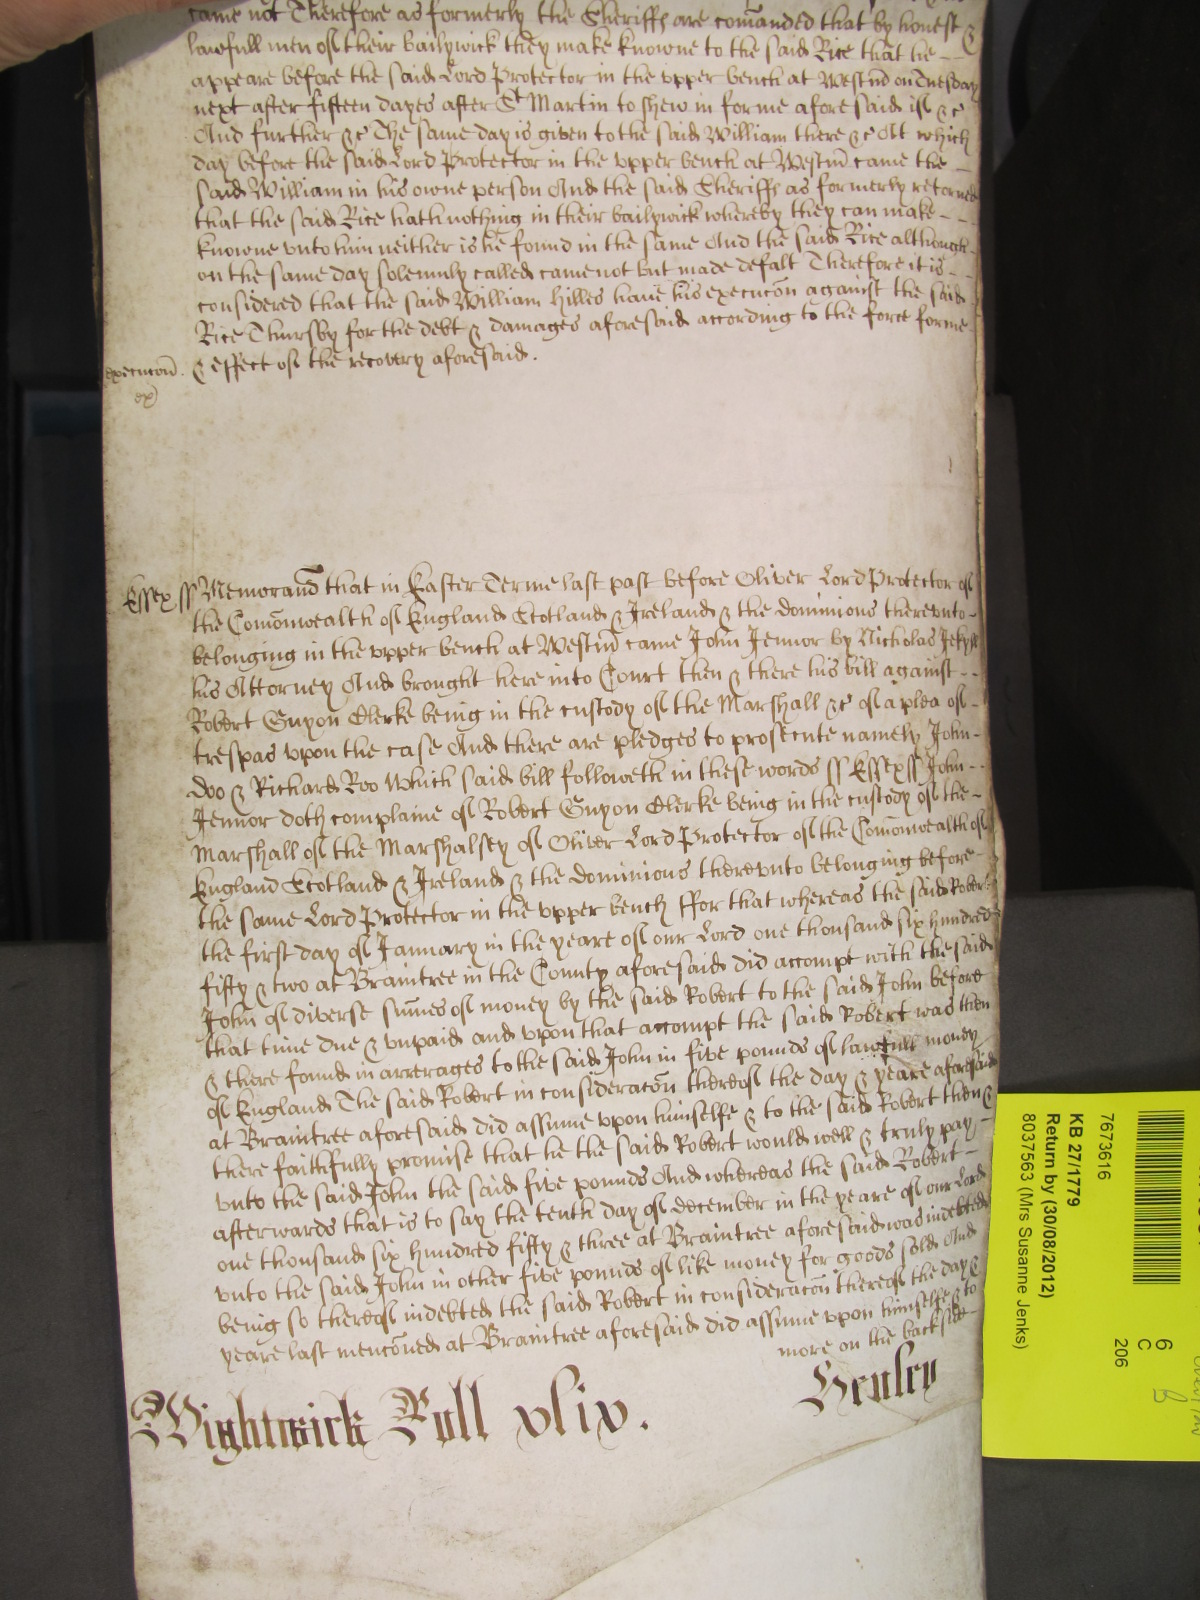 came not Therefore as formerly the Sheriffs are comanded that by honest &
lawfull men of their bailywick they make knowne to the said Rice that he
appeare before the said Lord Protector in the upper bench at Westm̄ on Tuesday
next after fifteen dayes after St Martin to shew in forme aforesaid if &c
And further &c The same day is given to the said William there &c At which
day before the said Lord Protector in the upper bench at Westm̄ came the
said William in his owne person And the said Sheriffs as formerly retorned
that the said Rice hath nothing in their bailywick whereby they can make
knowne vnto him neither is he found in the same And the said Rice although
on the same day solemnly called came not but made defalt Therefore it is
considered that the said William Hilles haue his execucōn against the said
Rice Thursby for the debt & damages aforesaid according to the force forme
& effect of the recovery aforesaid.
execucōn.
ex)
Essex ss Memorand̄ that in Easter Terme last past before Oliver Lord Protector of
the Com̄onwealth of England Scotland & Ireland & the dominions therevnto
belonging in the vpper bench at Westm̄ came John Jennor by Nicholas Jekyll
his Attorney And brought here into Court then & there his bill against
Robert Guyon Clerke being in the custody of the Marshall &c of a plea of
trespas vpon the case And there are pledges to prosecute namely John
Doo & Richard Roo Which said bill followeth in these words ss Essex ss John
Jennor doth complaine of Robert Guyon Clerke being in the custody of the
Marshall of the Marshalsey of Oliver Lord Protector of the Com̄onwealth of
England Scotland & Ireland & the dominions therevnto belonging before
the same Lord Protector in the vpper bench ffor that whereas the said Robert
the first day of January in the yeare of our Lord one thousand six hundred
fifty & two at Braintree in the County aforesaid did accompt with the said
John of diverse sum̄es of money by the said Robert to the said John before
that time due & vnpaid and vpon that accompt the said Robert was then
& there found in arrerages to the said John in five pounds of lawfull money
of England The said Robert in consideracōn thereof the day & yeare aforesaid
at Braintree aforesaid did assume vpon himselfe & to the said Robert then &
there faithfully promise that he the said Robert would well & truly pay
vnto the said John the said five pounds And whereas the said Robert
afterwards that is to say the tenth day of december in the yeare of our Lord
one thousand six hundred fifty & three at Braintree aforesaid was indebted
vnto the said John in other five pounds of like money for goods sold And
being so thereof indebted the said Robert in consideracōn thereof the day &
yeare last menc̄oned at Braintree aforesaid did assume vpon himselfe & to
more on the back side
Wightwick Roll xlix.
Henley
7673616
KB 27/1779
Return by (30/08/2012)
8037563 (Mrs Susanne Jenks)
6
C
206